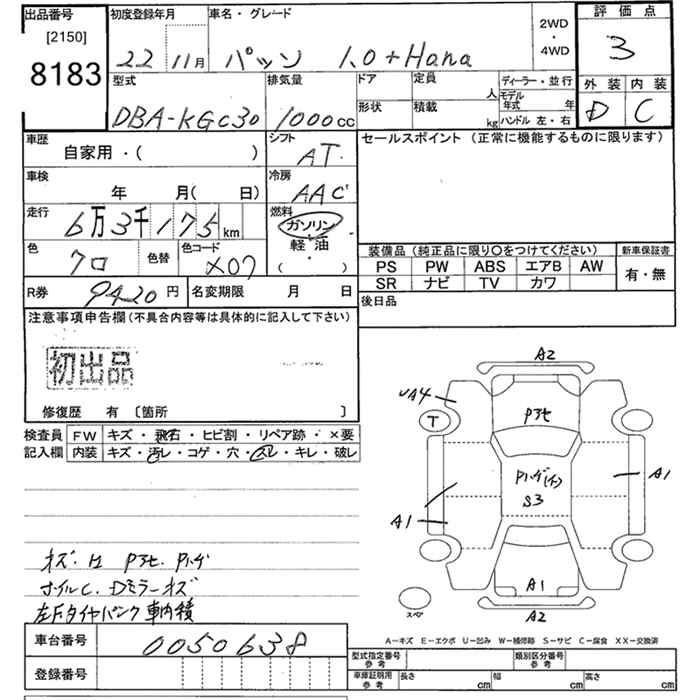 出品番号
[2150]
8183
初度登録年月
22 11月
車名・グレード
パッソ 1.0+Hana
2WD
・
4WD
評価点
3
外装 内装
D C
型式
DBA-KGC30
排気量
1000cc
ドア
形状
定員
人
積載
kg
ディーラー・並行
モデル
年式 年
ハンドル 左・右
車歴
自家用・( )
シフト
AT
セールスポイント(正常に機能するものに限ります)
車検
年 月( 日)
冷房
AAC
走行
6万3千175km
燃料
ガソリン
軽・油
( )
色
クロ
色替
色コード
X07
装備品(純正品に限り○をつけてください)
新車保証書
PS PW ABS エアB AW
SR ナビ TV カワ
有・無
R券
9420円
名変期限 月 日
後日品
注意事項申告欄(不具合内容等は具体的に記入して下さい)
初出品
修復歴 有〔箇所 〕
検査員
記入欄
FW キズ・飛石・ヒビ割・リペア跡・×要
内装 キズ・汚レ・コゲ・穴・スレ・キレ・破レ
A2
UA4
T
Pアセ
A1
S3
A1
A1
A2
スペ
キズ.H Pアセ. Pハゲ
ホイルC. Dミラーキズ
左Fタイヤパンク 車内積
A-キズ E-エクボ U-凹み W-補修跡 S-サビ C-腐食 XX-交換済
車台番号
0050638
登録番号
型式指定番号
参考
類別区分番号
参考
車庫証明用
参考
長さ cm
幅 cm
高さ cm